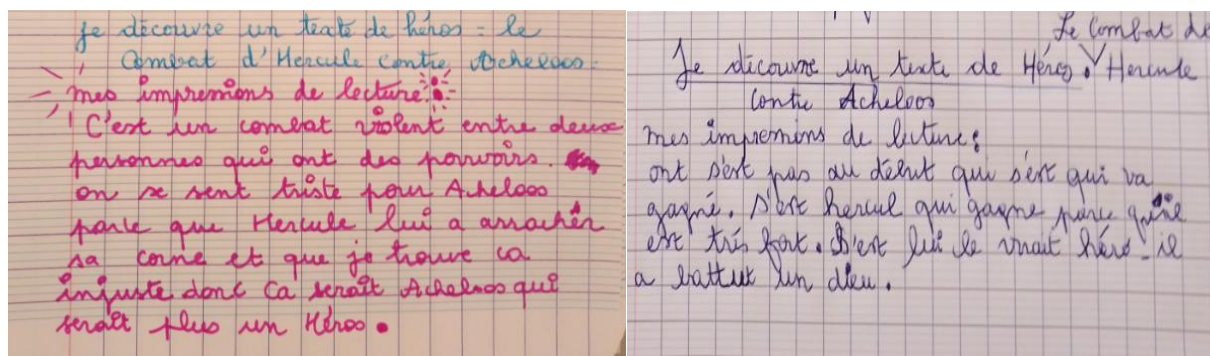 Je découvre un texte de héros : le
Combat d'Hercule contre Acheloos.
mes impressions de lecture :
C'est un combat violent entre deux
personnes qui ont des pouvoirs.
on se sent triste pour Acheloos
parce que Hercule lui a arracher
sa corne et que je trouve ca
injuste donc ca serait Acheloos qui
serait plus un Héros.
Le Combat de
Je découvre un texte de Héros : Hercule
contre Acheloos
mes impressions de lecture :
ont s'est pas au début qui s'est qui va
gagné. s'est hercul qui gagne parce qu'il
est trés fort. s'est lui le vrait héro il
a battut un dieu.